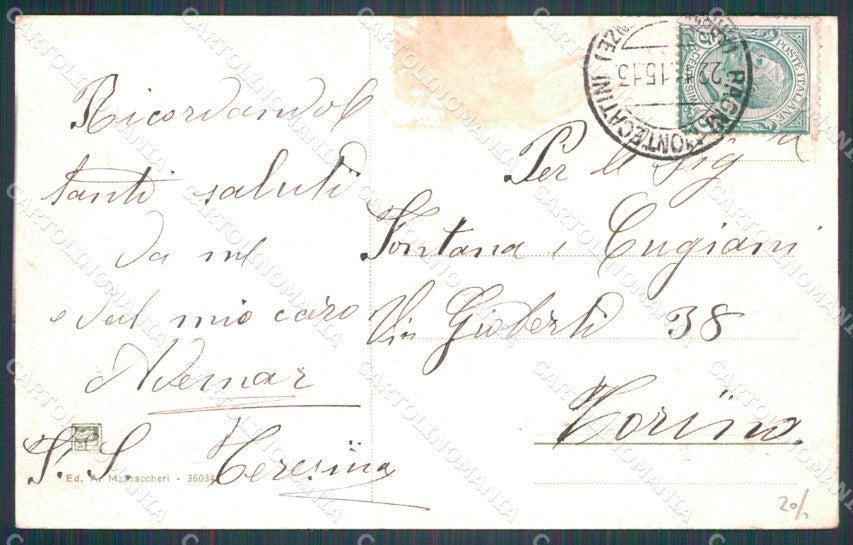 Ricordandol
tanti saluti
da me
e dal mio caro
Adernar
S. S. Teresina
Ed. A. Mazzaccheri - 36034
BAGNI MONTECATINI
22 15.13
POSTE ITALIANE
Per le Sig
Fontana e Cugiani
Via Gioberti 38
Torino.
20/.
CARTOLINOMANIA